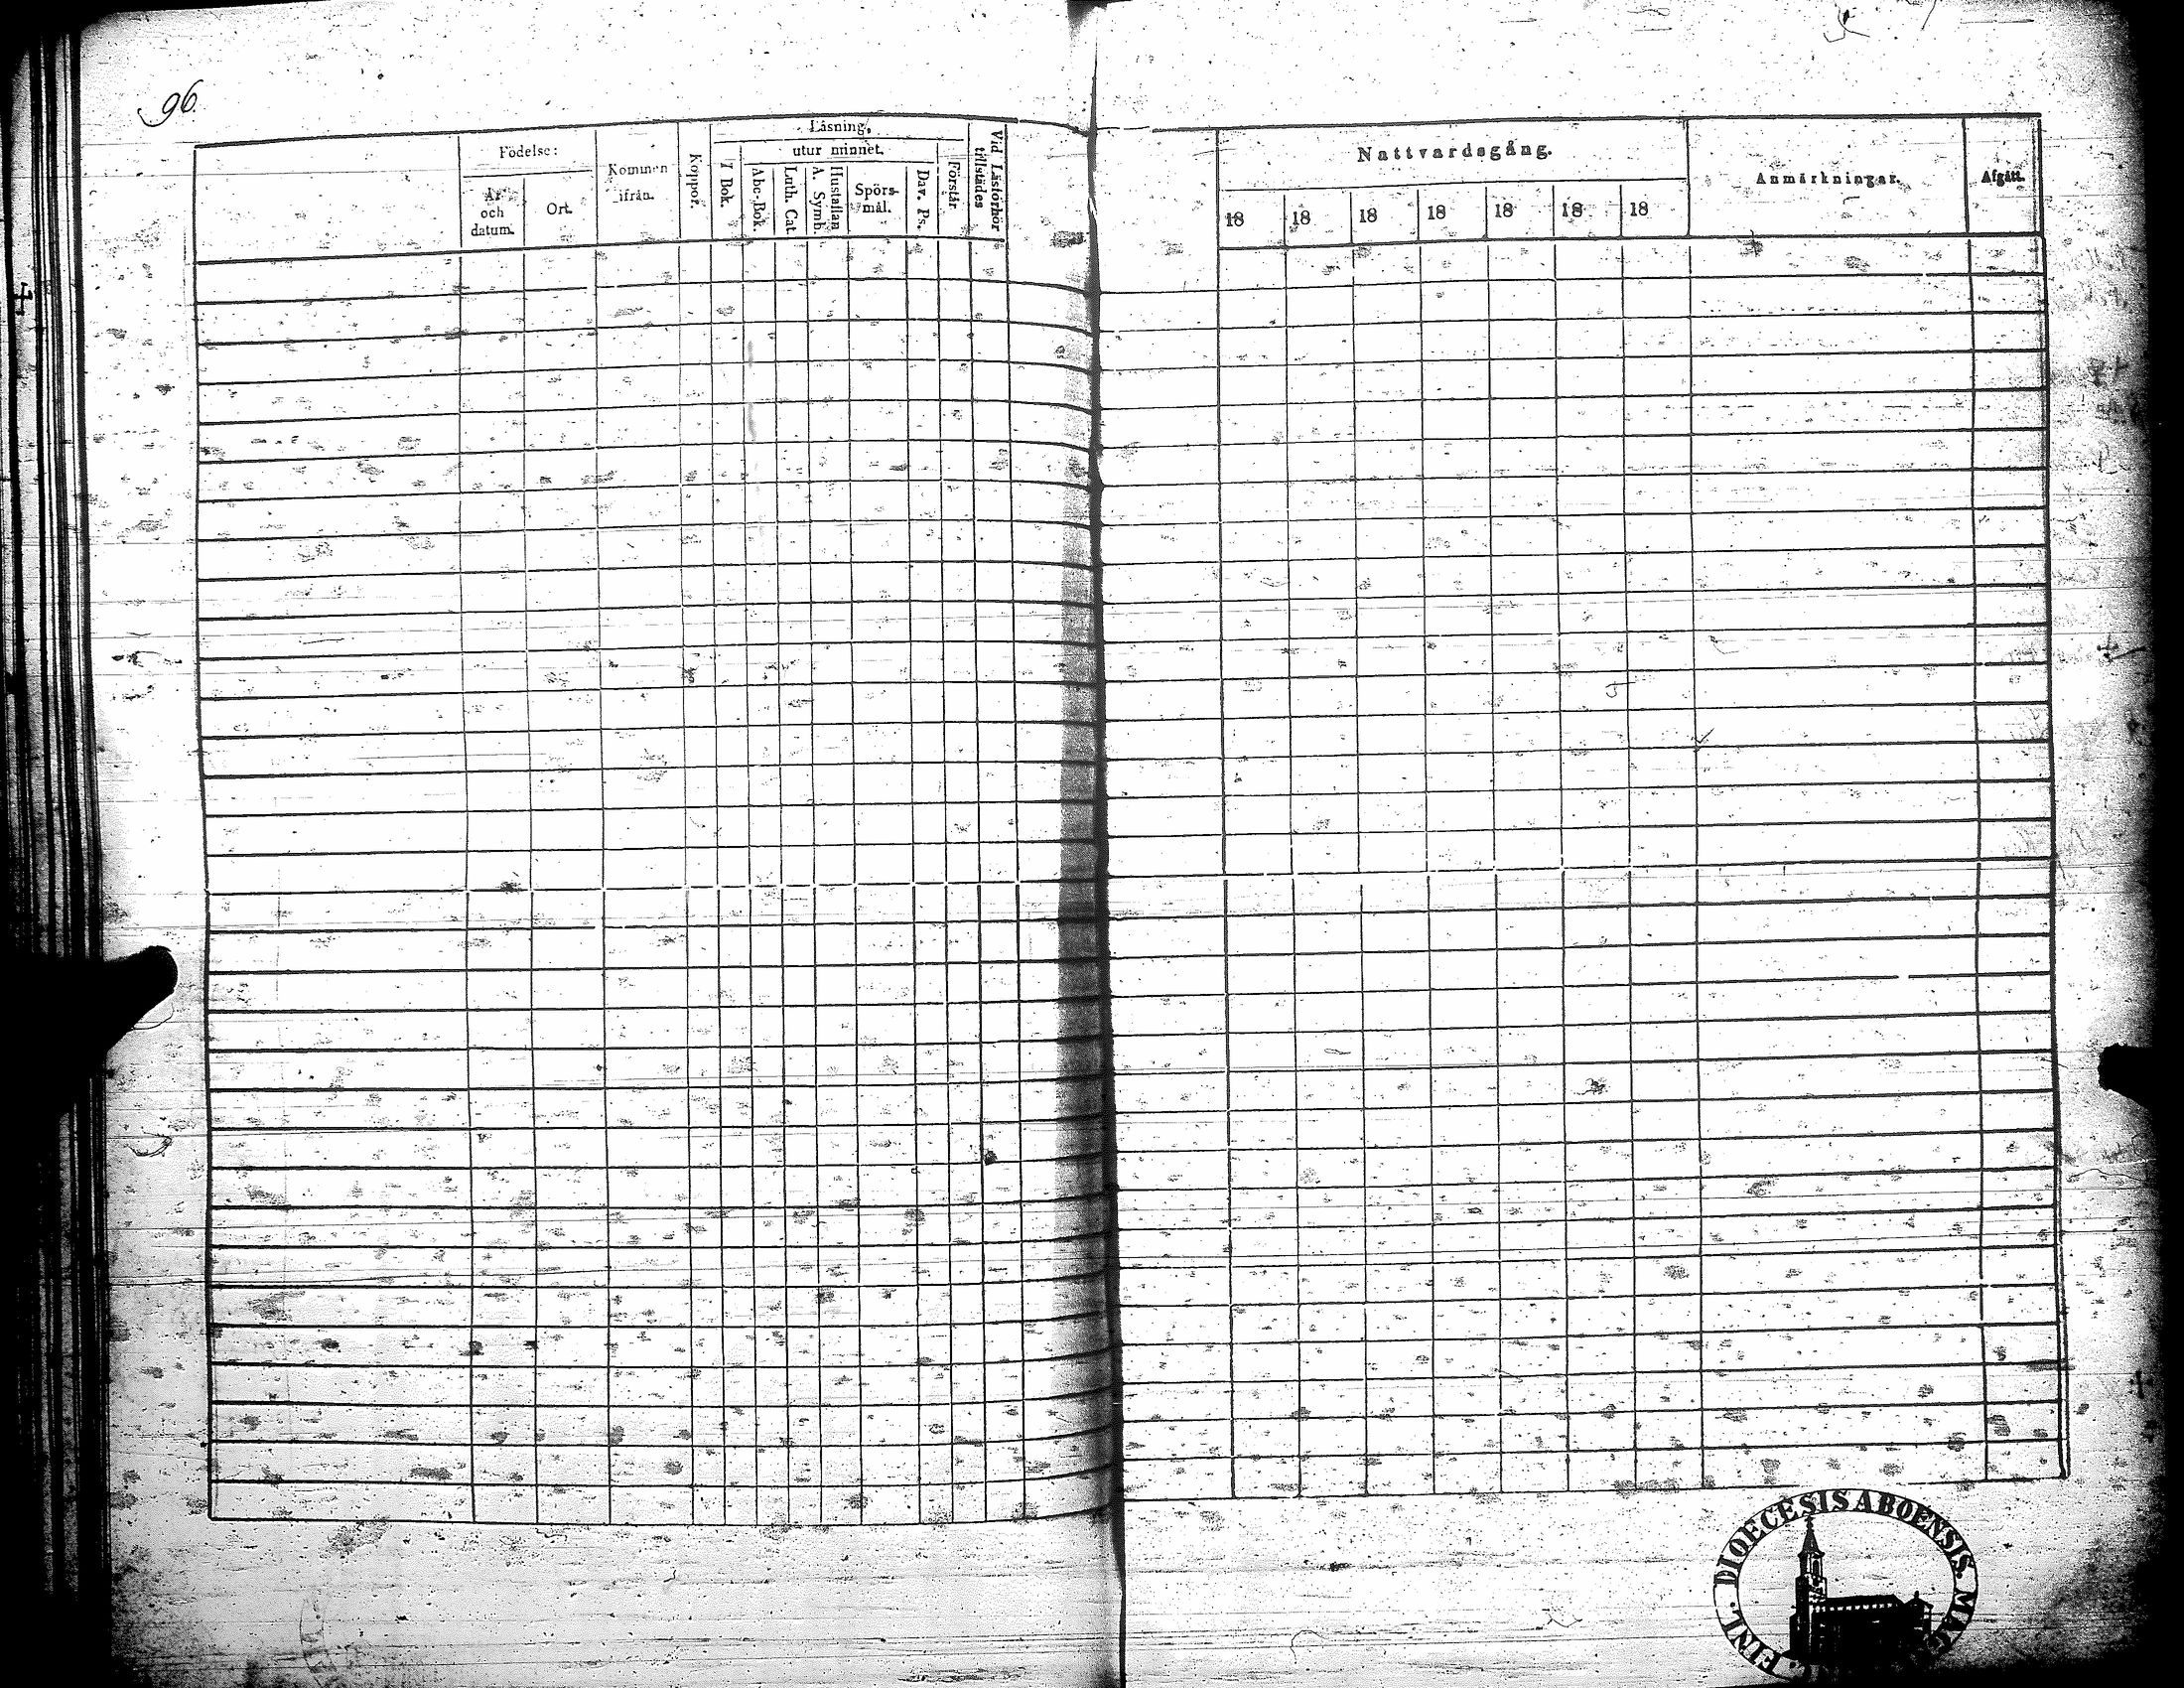 96.
Födelse:
År och datum.
Ort.
Kommen ifrån.
Koppor.
Läsning,
utur minnet.
I Bok.
Abc-Bok
Luth. Cat.
Hustaflan
A. Symb.
Spörs-
mål.
Dav. Ps.
Förstår
Vid Läsförhör
tillstädes
Nattvardsgång.
18 18 18 18 18 18 18
Anmärkningar.
Afgått.
DIOECESIS ABOENSIS.
FINL.